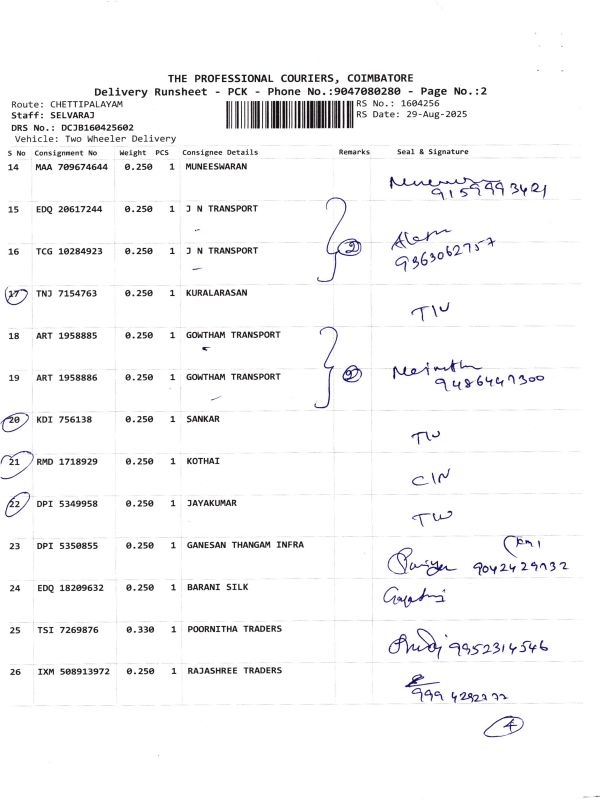 THE PROFESSIONAL COURIERS, COIMBATORE
Delivery Runsheet - PCK - Phone No.:9047080280 - Page No.:2
Route: CHETTIPALAYAM RS No.: 1604256
Staff: SELVARAJ RS Date: 29-Aug-2025
DRS No.: DCJB160425602
Vehicle: Two Wheeler Delivery
S No Consignment No Weight PCS Consignee Details Remarks Seal & Signature
14 MAA 709674644 0.250 1 MUNEESWARAN
9159993421
15 EDQ 20617244 0.250 1 J N TRANSPORT
16 TCG 10284923 0.250 1 J N TRANSPORT 2
9363062757
17 TNJ 7154763 0.250 1 KURALARASAN
18 ART 1958885 0.250 1 GOWTHAM TRANSPORT
19 ART 1958886 0.250 1 GOWTHAM TRANSPORT 2
9486447300
20 KDI 756138 0.250 1 SANKAR
21 RMD 1718929 0.250 1 KOTHAI
CIN
22 DPI 5349958 0.250 1 JAYAKUMAR
23 DPI 5350855 0.250 1 GANESAN THANGAM INFRA
9042429732
24 EDQ 18209632 0.250 1 BARANI SILK
25 TSI 7269876 0.330 1 POORNITHA TRADERS
9952314546
26 IXM 508913972 0.250 1 RAJASHREE TRADERS
4